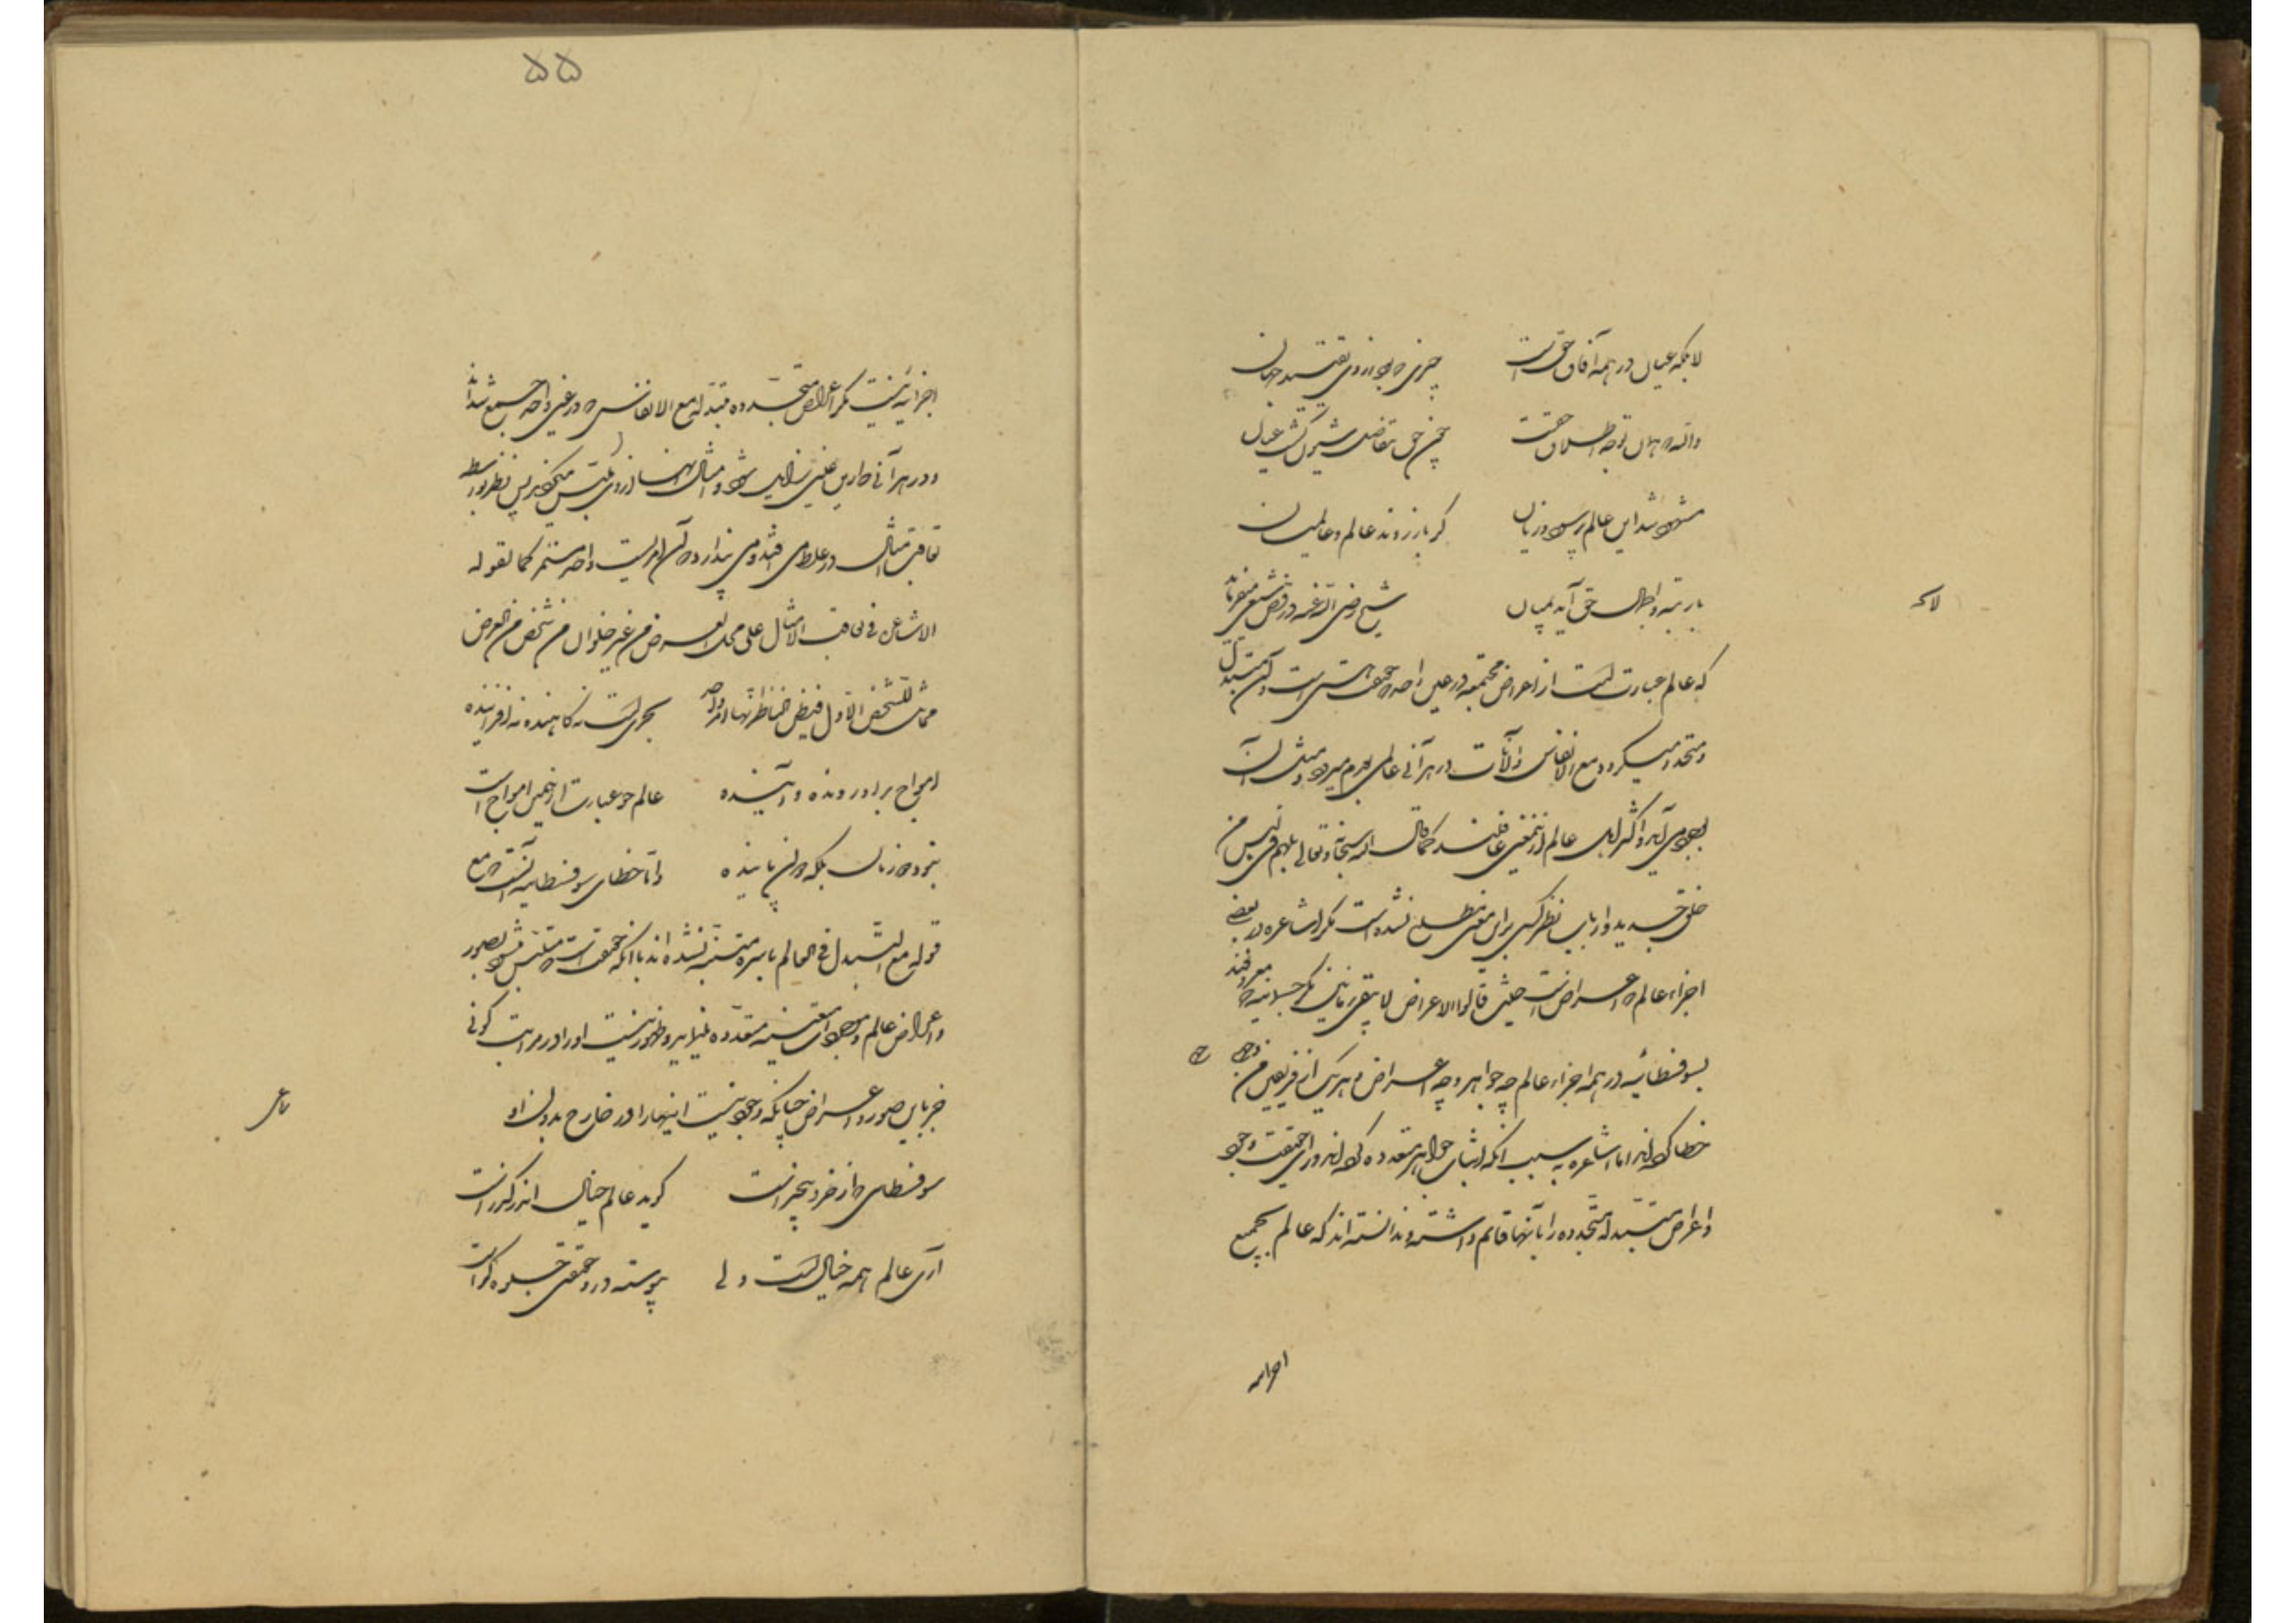 لایحه
لا بلکه عیان در همه آفاق حق است
چیزی که بود ز روی تقیید جهان
والله که همان ز وجه اطلاق حق است
چون حق بتفاصیل شئون گشت عیان
مشهود شد این عالم پر سود و زیان
گر باز روند عالم و عالمیان
با رتبه اجمال حق آید بمیان
شیخ رضی الله عنه در فص شعیبی میفرماید
که عالم عبارتست از اعراض مجتمعه در عین واحد که حقیقت هستی است و آن متبدل
و متجدد میگردد مع الانفاس و الآنات در هر آنی عالمی بعدم میرود و مثل آن
بوجود می آید و اکثر اهل عالم ازین معنی غافلند کما قال الله سبحانه و تعالی بل هم فی لبس من
خلق جدید و ارباب نظر کسی برین معنی مطلع نشده است مگر اشاعره در بعضی
اجزاء عالم که اعراض است حیث قالوا الاعراض لا یبقی زمانین مگر حسبانیه که معروفند
بسوفسطائیه در همه اجزاء عالم چه جواهر و چه اعراض و هر یک از فریقین من وجهی
خطا کرده اند اما اشاعره به سبب آنکه اثبات جواهر متعدده کرده اند ورای حقیقت وجود
و اعراض متبدله متجدده را بآنها قائم داشته و ندانسته اند که عالم بجمیع
اجزائه
۵۵
اجزائه نیست مگر اعراض متجدده متبدله مع الانفاس که در عین واحد جمع شده اند
و در هر آنی ازین عین زایل میشوند و امثال آنها بروی متلبس میگردند پس ناظر بواسطه
تعاقب امثال در غلط می افتد و می پندارد که آن امریست واحد مستمر کما یقوله
الاشاعره فی تعاقب الامثال علی محل العرض من غیر خلو آن من شخص من العرض
مماثل للشخص الاول فیظن الناظر انها امر واحد
بحریست نه کاهنده نه افزاینده
امواج برو رونده و آینده
عالم چو عبارت از همین امواج است
نبود دو زمان بلکه دو آن پاینده
و اما خطای سوفسطائیه آنست که مع
قولهم بالتبدل فی العالم باسره متنبه نشده اند بآنکه یک حقیقتست که متلبس میشود بصور
و اعراض عالم و موجودات متعینه متعدده مینماید و ظهور نیست او را در مراتب کونی
جز باین صور و اعراض چنانکه وجود نیست اینها را در خارج بدون او
رباعی
سوفسطائی که از خرد بیخبر است
گوید عالم خیالی اندر گذر است
آری عالم همه خیال است ولی
پیوسته درو حقیقتی جلوه گر است